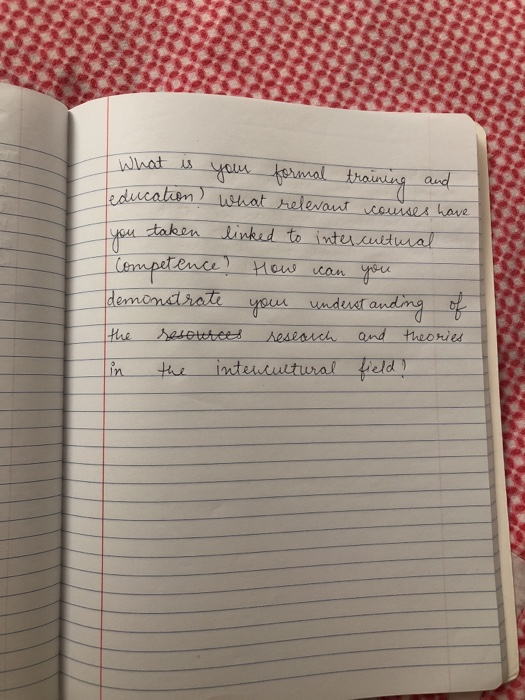 What is your formal training and
education? What relevant courses have
you taken linked to intercultural
Competence? How can you
demonstrate your understanding of
the resources research and theories
in the intercultural field?